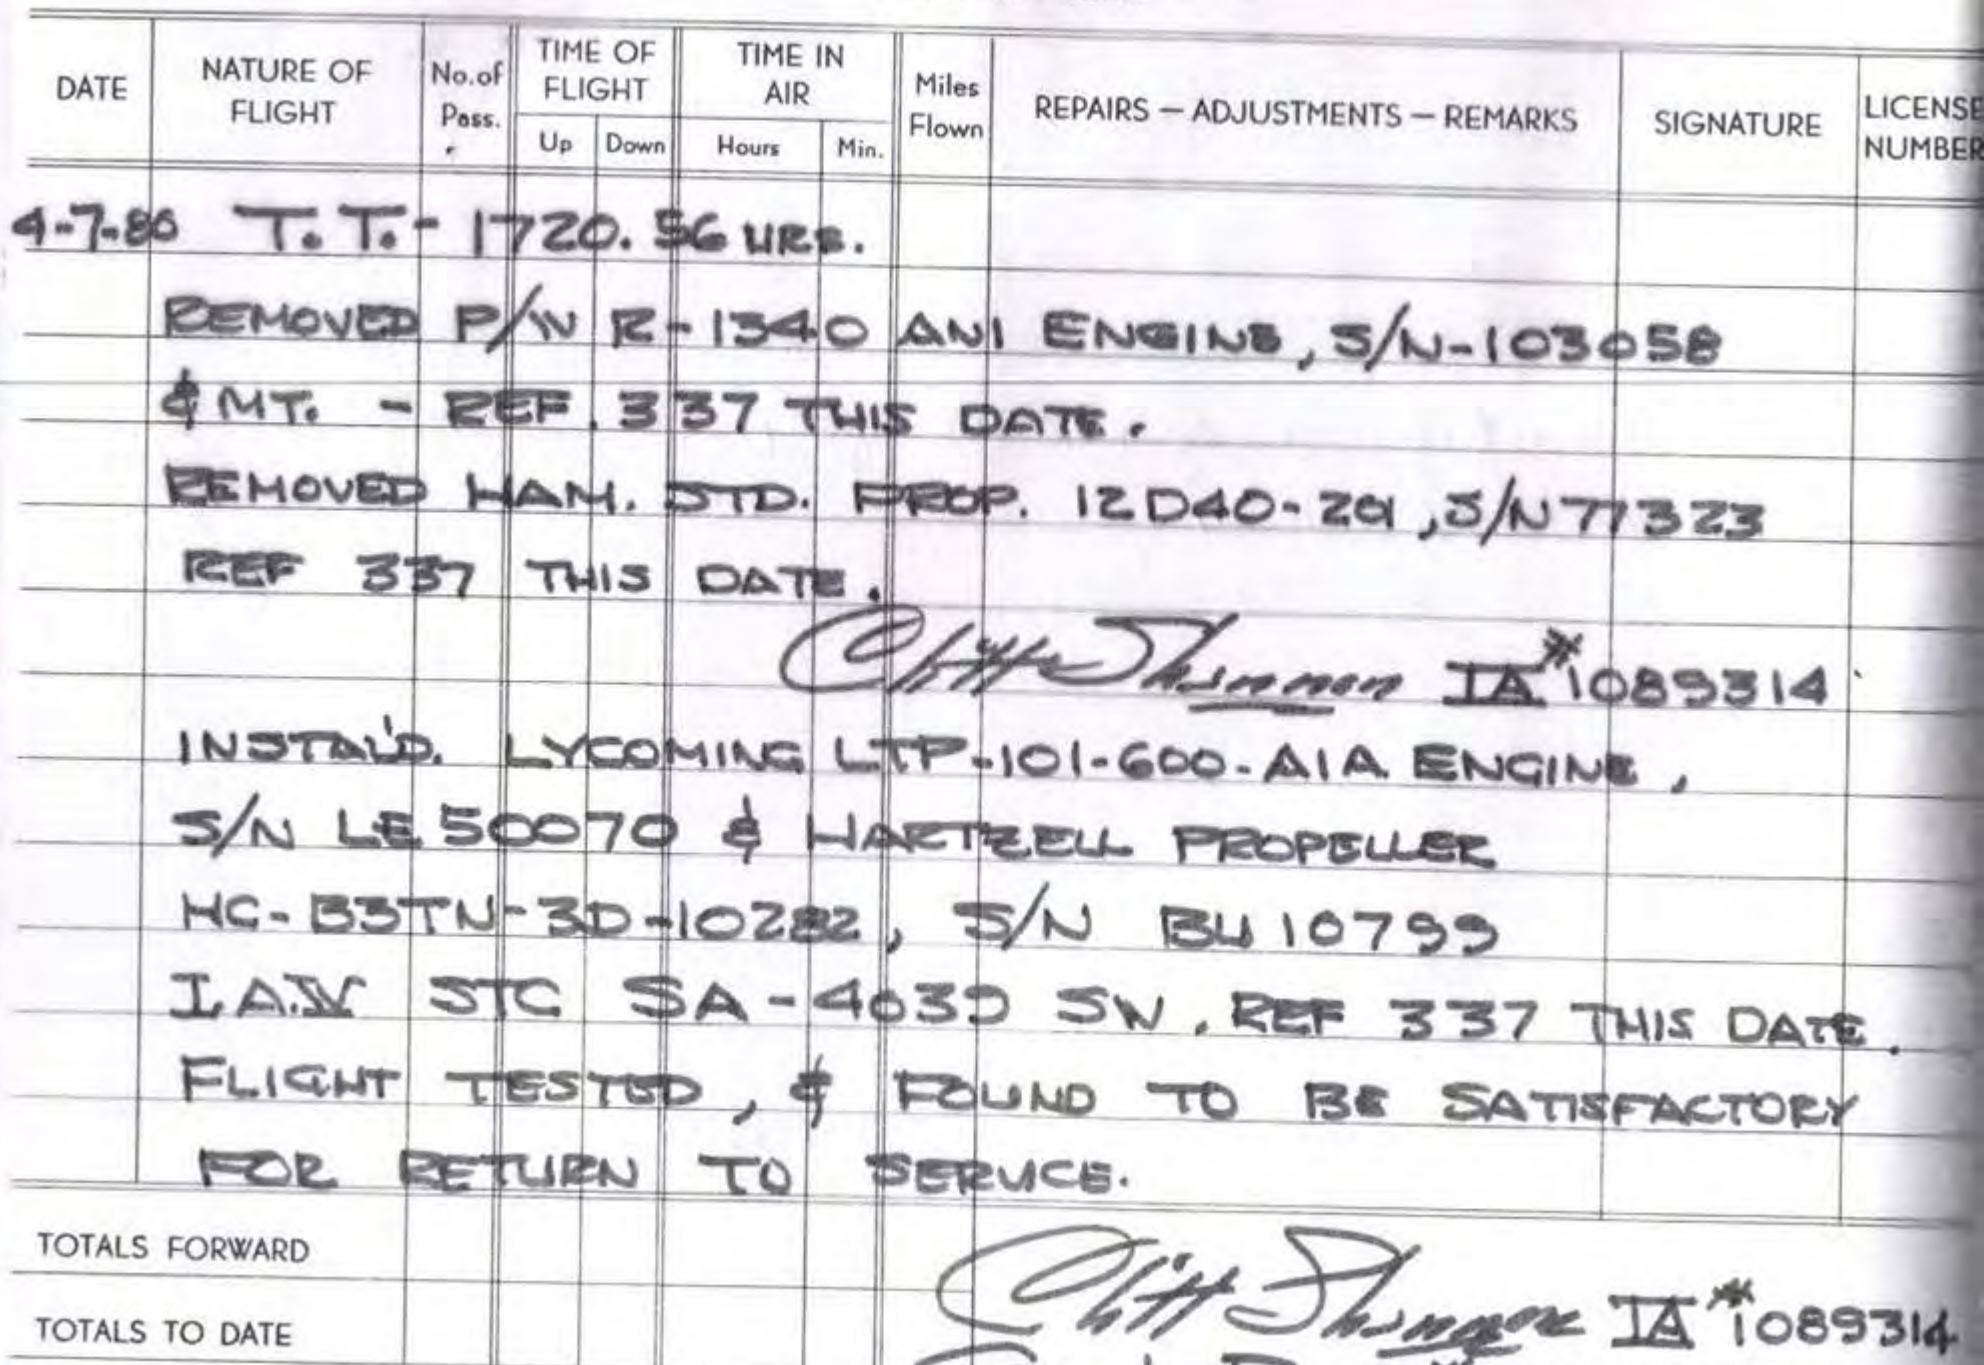 DATE NATURE OF FLIGHT No. of Pass. TIME OF FLIGHT Up Down TIME IN AIR Hours Min. Miles Flown REPAIRS — ADJUSTMENTS — REMARKS SIGNATURE LICENSE NUMBER
4-7-80 T.T.- 1720.56 HRS.
REMOVED P/W R-1340 AN1 ENGINE, S/N-103058
& MT. - REF. 337 THIS DATE.
REMOVED HAM. STD. PROP. 12D40-201, S/N 77323
REF 337 THIS DATE.
Cliff Shannon IA #1089314
INSTAL'D. LYCOMING LTP-101-600-A1A ENGINE,
S/N LE 50070 & HARTZELL PROPELLER
HC-B3TN-3D-10282, S/N BU 10799
I.A.W STC SA-4039 SW. REF 337 THIS DATE.
FLIGHT TESTED, & FOUND TO BE SATISFACTORY
FOR RETURN TO SERVICE.
TOTALS FORWARD
Cliff Shannon IA #1089314
TOTALS TO DATE